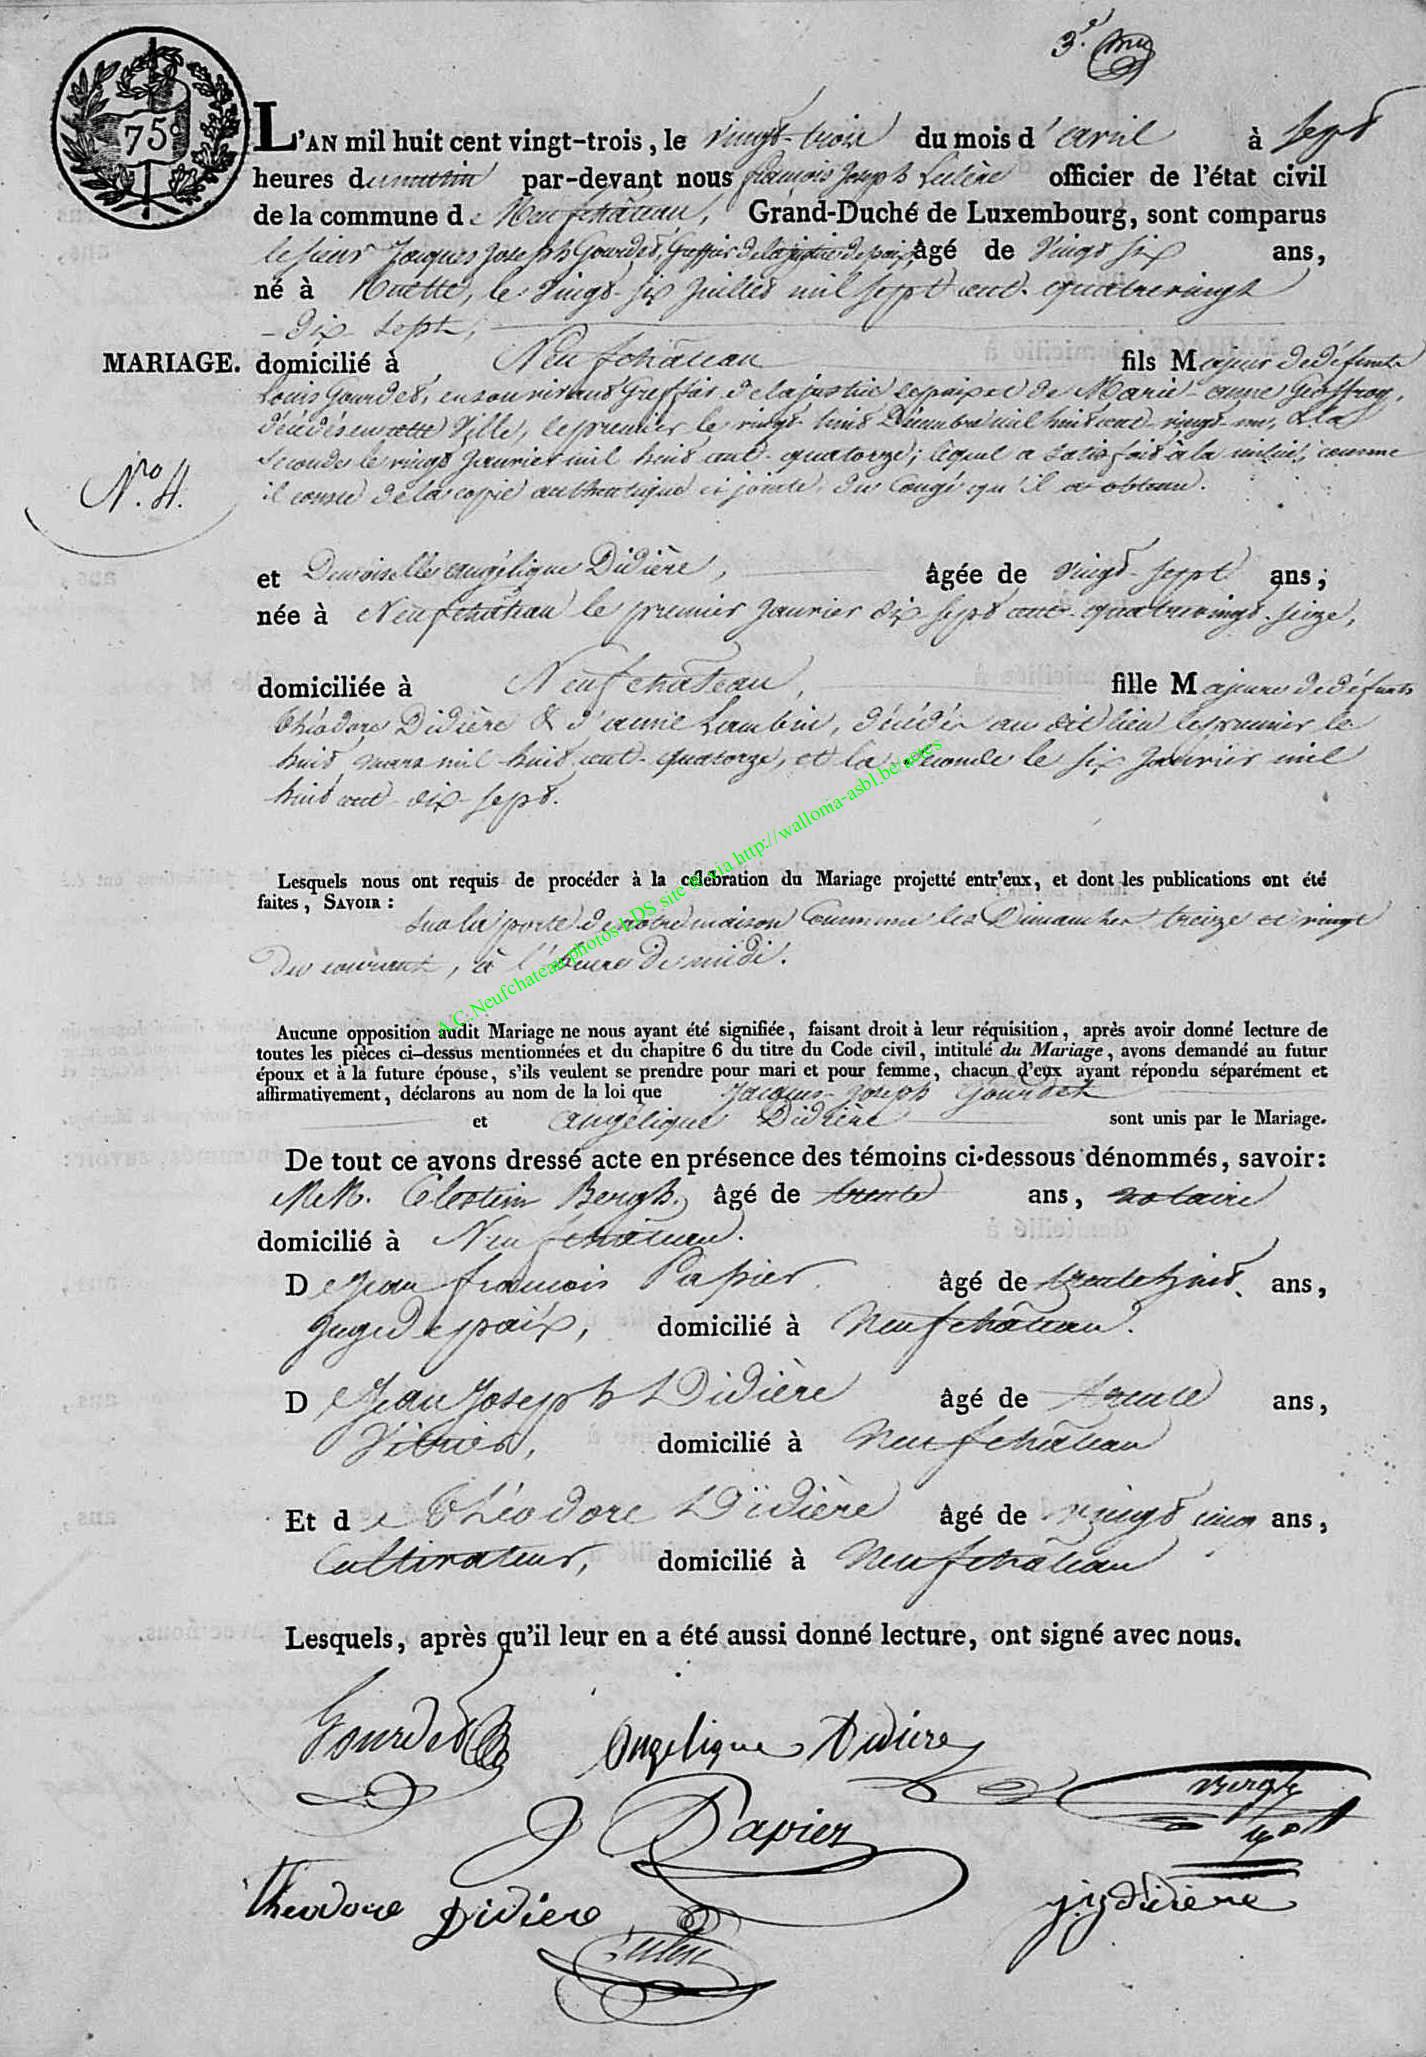 3.e
75c
L'AN mil huit cent vingt-trois, le vingt-trois du mois d'avril à sept
heures du matin par-devant nous françois Joseph officier de l'état civil
de la commune de Neufchâteau, Grand-Duché de Luxembourg, sont comparus
le sieur Jacques Joseph Gourdet, Greffier de la justice de paix, âgé de vingt six ans,
né à le vingt-six juillet mil sept cent quatrevingt
-dix sept,
MARIAGE. domicilié à Neufchâteau fils Majeur de défunts
Louis Gourdet, en son vivant Greffier de la justice de paix et de Marie-anne Geoffroy,
décédés en cette Ville, le premier le vingt-huit Décembre mil huit cent-vingt-un, & la
Seconde le vingt Janvier mil huit cent-quatorze; lequel a satisfait à la milice, comme
il conste de la copie authentique ci jointe, du Congé qu'il a obtenu.
N.ro 4.
et Demoiselle angélique Didière, âgée de vingt-sept ans;
née à Neufchâteau le premier Janvier dix sept cent-quatrevingt-seize,
domiciliée à Neufchâteau, fille Majeure de défunts
théodore Didière & d'anne Lambin, décédés au dit lieu le premier le
huit mars mil-huit cent-quatorze, et la seconde le six Janvier mil
huit cent-dix-sept.
Lesquels nous ont requis de procéder à la célébration du Mariage projetté entr'eux, et dont les publications ont été
faites, SAVOIR :
sur la porte de notre maison Commune les Dimanches treize et vingt
du courant, à l'heure de midi.
Aucune opposition audit Mariage ne nous ayant été signifiée, faisant droit à leur réquisition, après avoir donné lecture de
toutes les pièces ci-dessus mentionnées et du chapitre 6 du titre du Code civil, intitulé du Mariage, avons demandé au futur
époux et à la future épouse, s'ils veulent se prendre pour mari et pour femme, chacun d'eux ayant répondu séparément et
affirmativement, déclarons au nom de la loi que Jacques-Joseph Gourdet
et angélique Didière sont unis par le Mariage.
De tout ce avons dressé acte en présence des témoins ci-dessous dénommés, savoir:
MrM. Célestin Bergh, âgé de trente ans, notaire
domicilié à Neufchâteau.
De Jean françois Papier âgé de trente huit ans,
Juge de paix, domicilié à Neufchâteau.
De Jean Joseph Didière âgé de trente ans,
Vitrier, domicilié à Neufchâteau
Et de Théodore Didière âgé de vingt cinq ans,
Cultivateur, domicilié à Neufchâteau
Lesquels, après qu'il leur en a été aussi donné lecture, ont signé avec nous.
Gourdet Angelique Didière
Bergh
J Papier
Theodore Didiere
j:j Didiere
A.C.Neufchateau photos LDS site © via http://wallonia-asbl.be/actes